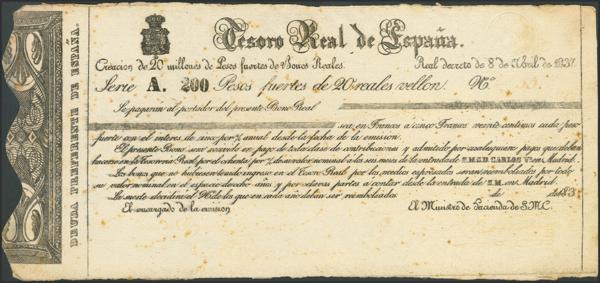 Tesoro Real de España.
Creacion de 20 millones de Pesos fuertes de Bonos Reales. Real decreto de 8 de Abril de 1837
Serie A. 200 Pesos fuertes de 20 reales vellon. Nº
Se pagaran al portador del presente Bono Real
sea en Francos a cinco Francos veinte centimos cada peso
fuerte con el interes de cinco por % anual desde la fecha de la emision.
El presente Bono sera recivido en pago de toda clase de contribuciones y admitido por cualesquiera pagos que deban
hacerse en la Tesoreria Real, por el ochenta por % de su valor nominal a los seis meses de la entrada de S.M.C.D. CARLOS V. en Madrid.
Los bonos que no hubiesen tenido ingreso en el Tesoro Real por los medios espresados seran reembolsados por todo
su valor nominal en el espacio de ocho años y por octavas partes a contar desde la entrada de S.M. en Madrid.
La suerte decidira el Nº de los que en cada año deban ser reembolsados. de de 183
El encargado de la emision El Ministro de Hacienda de S.M.C.
DEUDA PREFERENTE DE ESPAÑA.